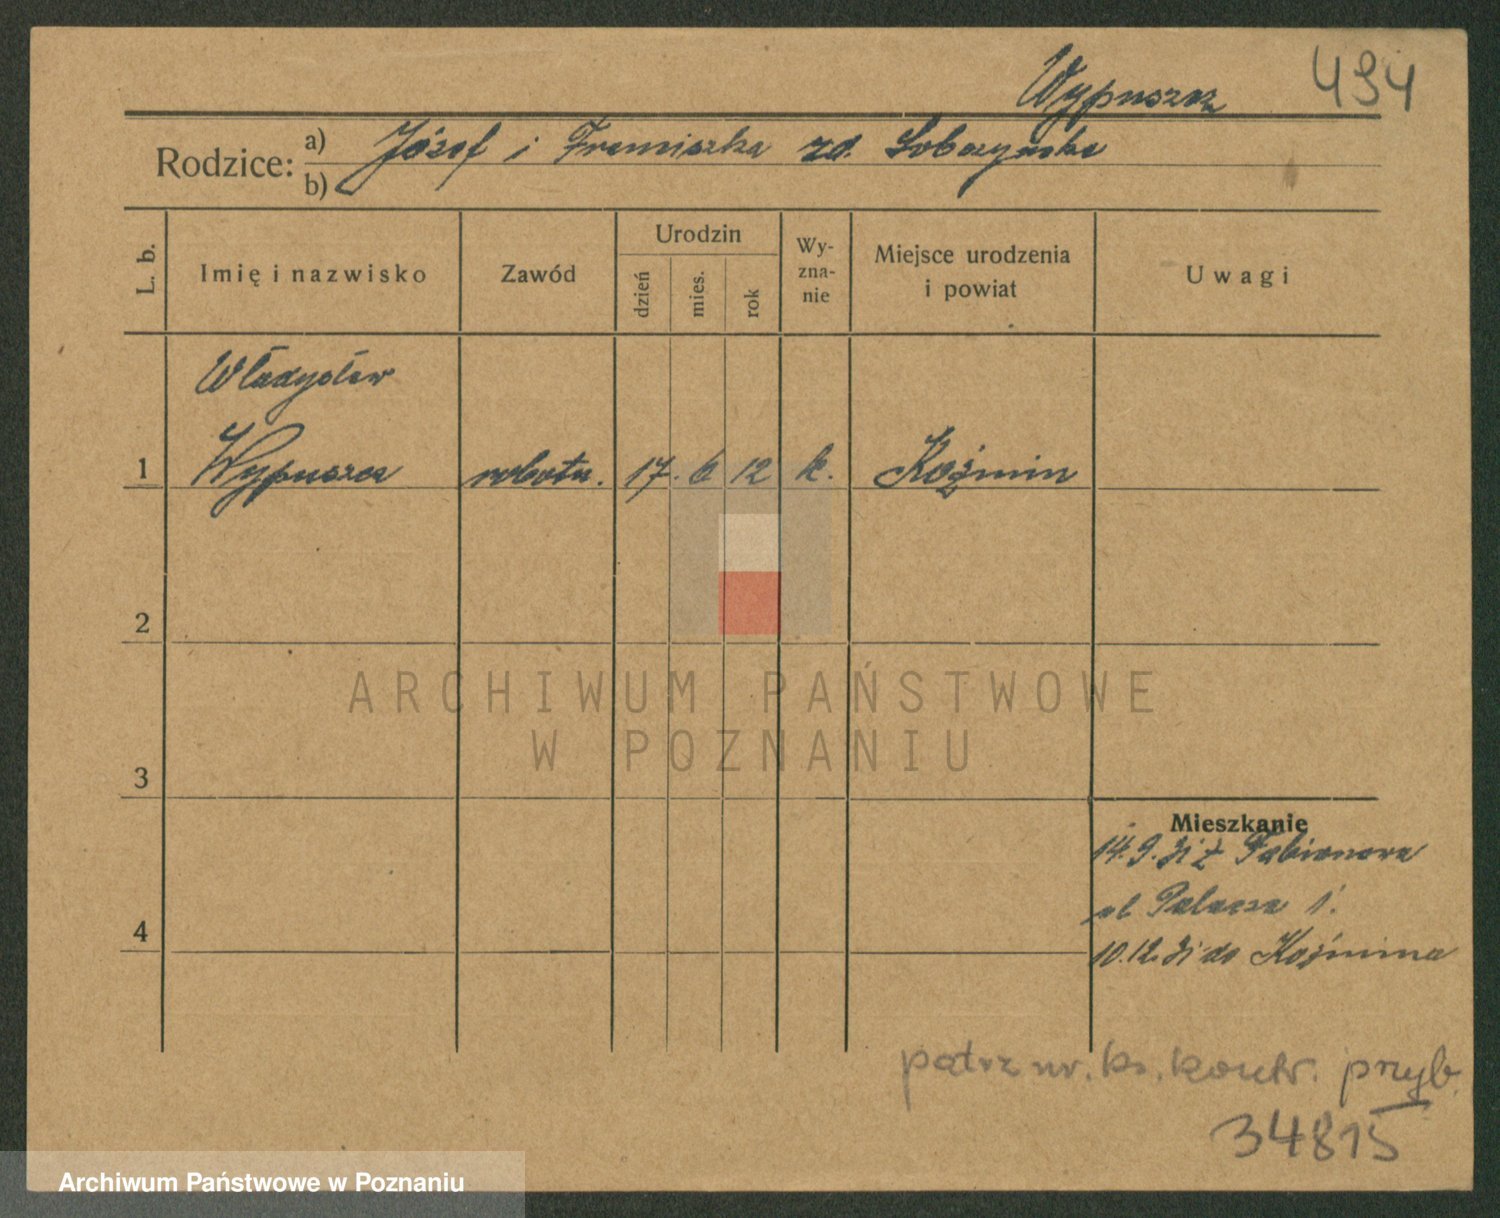 Wypuszcz 494
Rodzice: a) Józef i Franciszka zd. Sobczyńska
b)
L. b. Imię i nazwisko Zawód Urodzin dzień mies. rok Wy-zna-nie Miejsce urodzenia i powiat Uwagi
Władysław
1 Wypuszcz robotn. 17. 6 12 k. Koźmin
2
ARCHIWUM PAŃSTWOWE
W POZNANIU
3
Mieszkanie
14.9.31 z Fabianowa
ul Palacza 1.
4 10.12.31 do Koźmina
patrz nr. ks. kontr. przyb.
34815
Archiwum Państwowe w Poznaniu